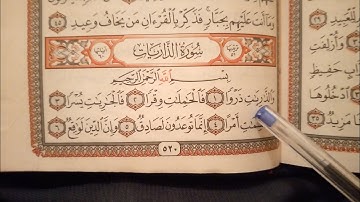 وَمَا أَنْتَ عَلَيْهِمْ بِجَبَّارٍ فَذَكِّرْ بِالْقُرْءَانِ مَنْ يَخَافُ وَعِيدِ ٤٥
سُورَةُ الذَّارِيَاتِ
بِسْمِ اللَّهِ الرَّحْمَٰنِ الرَّحِيمِ
وَالذَّٰرِيَٰتِ ذَرْوًا ١ فَالْحَٰمِلَٰتِ وِقْرًا ٢ فَالْجَٰرِيَٰتِ يُسْرًا ٣
أَمْرًا ٤ إِنَّمَا تُوعَدُونَ لَصَادِقٌ ٥ وَإِنَّ الدِّينَ لَوَٰقِعٌ ٦
٥٢٠
وَأُزْلِفَتِ
حَفِيظٍ
ادْخُلُوهَا
مَزِيدٌ ٣٥